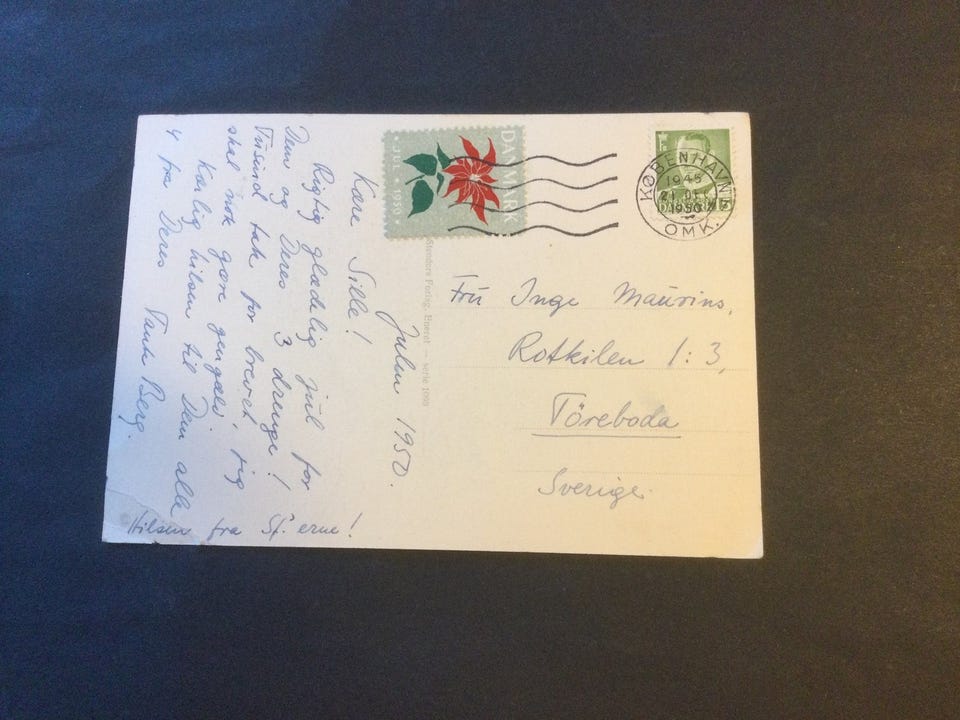 Julen 1950.
Kære Sille!
Rigtig glædelig jul for
Dem og Deres 3 drenge!
Tusind tak for brevet, jeg
skal nok gøre gengæld.
Kærlig hilsen til Dem alle
4 fra Deres Tante Berg.
Hilsen fra erne!
DANMARK
JUL 1950
KØBENHAVN
OMK.
1945
1950
DANMARK
Stenders Forlag. Eneret — serie
Fru Inge Maurins,
Rotkilen 1:3,
Töreboda
Sverige.